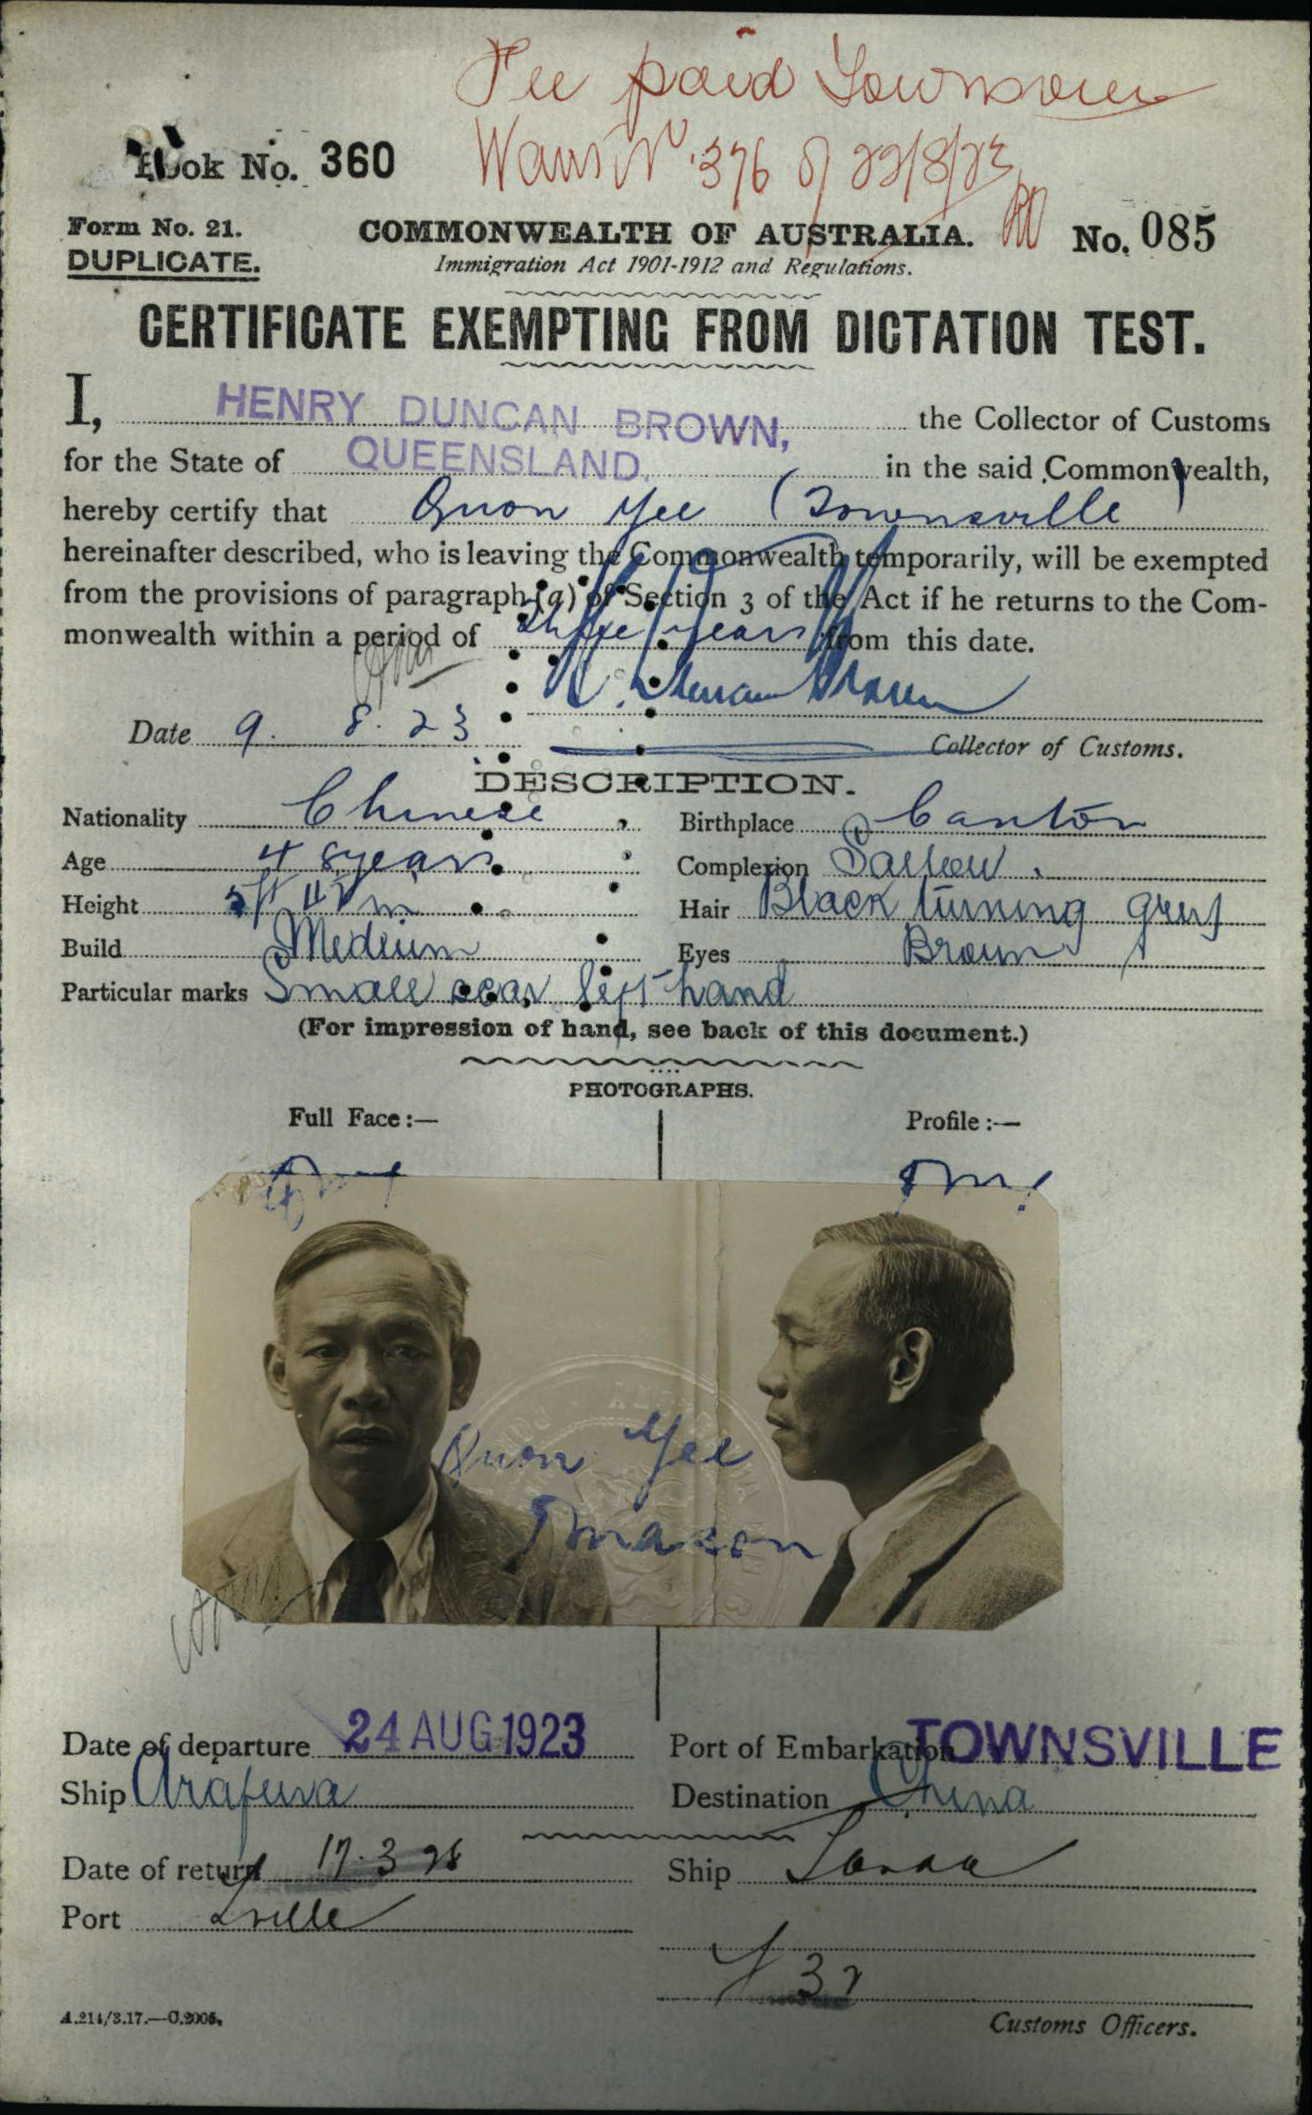 Fee paid Townsville
376 of 22/8/23
Book No. 360
Form No. 21.
DUPLICATE.
COMMONWEALTH OF AUSTRALIA.
No. 085
Immigration Act 1901-1912 and Regulations.
CERTIFICATE EXEMPTING FROM DICTATION TEST.
I, HENRY DUNCAN BROWN, the Collector of Customs
for the State of QUEENSLAND. in the said Commonwealth,
hereby certify that Quon Yee (Townsville)
hereinafter described, who is leaving the Commonwealth temporarily, will be exempted
from the provisions of paragraph (a) of Section 3 of the Act if he returns to the Com-
monwealth within a period of three years from this date.
Date 9. 8. 23
Collector of Customs.
DESCRIPTION.
Nationality Chinese Birthplace Canton
Age 48 years Complexion Sallow.
Height 5ft Hair Black turning grey
Build Medium Eyes Brown
Particular marks Small scar left hand
(For impression of hand, see back of this document.)
PHOTOGRAPHS.
Full Face:— Profile:—
Quon Yee
Date of departure 24 AUG 1923 Port of Embarkation TOWNSVILLE
Ship Arafura Destination China
Date of return Ship
Port Tville
Customs Officers.
A.214/3.17.—C.2005.